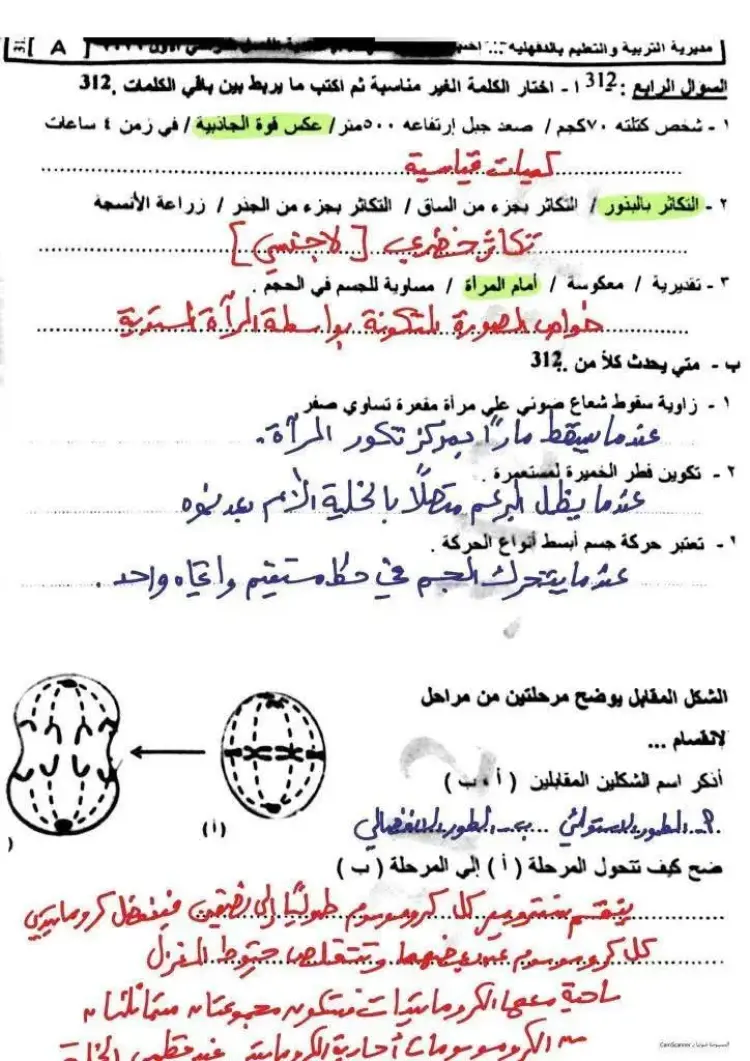 مديرية التربية والتعليم بالدقهلية ...
[ A ]
السؤال الرابع : 312 أ - اختار الكلمة الغير مناسبة ثم اكتب ما يربط بين باقي الكلمات .312
١ - شخص كتلته ٧٠كجم / صعد جبل إرتفاعه ٥٠٠متر/ عكس قوة الجاذبية / في زمن ٤ ساعات
كميات قياسية
٢ - التكاثر بالبذور / التكاثر بجزء من الساق / التكاثر بجزء من الجذر / زراعة الأنسجة
تكاثر خضري [ لاجنسي ]
٣ - تقديرية / معكوسة / أمام المرأة / مساوية للجسم في الحجم .
خواص الصورة المتكونة بواسطة المرآة المستوية
ب - متي يحدث كلاً من .312
١ - زاوية سقوط شعاع ضوئي علي مرأة مقعرة تساوي صفر
عندما يسقط مارًا بمركز تكور المرآة.
٢ - تكوين فطر الخميرة لمستعمرة .
عندما يظل البرعم متصلًا بالخلية الأم بعد نموه
٢ - تعتبر حركة جسم أبسط أنواع الحركة .
عندما يتحرك الجسم في خط مستقيم واتجاه واحد .
الشكل المقابل يوضح مرحلتين من مراحل
لانقسام ...
أذكر اسم الشكلين المقابلين ( أ ، ب )
(أ)
أ- الطور الاستوائي ب- الطور الانفصالي
ضح كيف تتحول المرحلة ( أ ) إلي المرحلة ( ب )
ينقسم سنترومير كل كروموسوم طوليًا إلى نصفين فينفصل كروماتيدي
كل كروموسوم عن بعضهما وتتقلص خيوط المغزل
ساحبة معها الكروماتيدات فيتكون مجموعتان متماثلتان
من الكروموسومات أحادية الكروماتيد عند قطبي الخلية
CamScanner